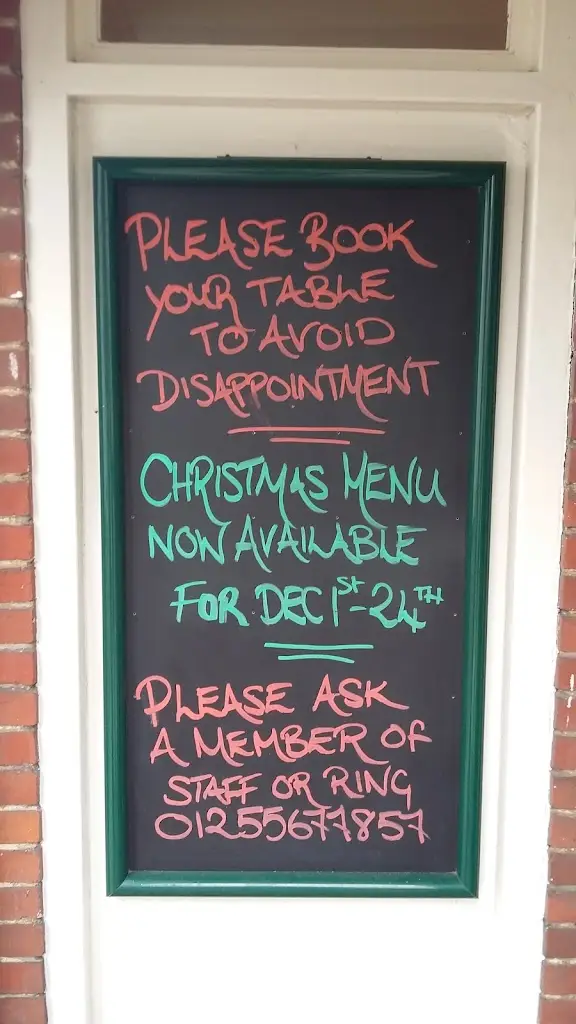 PLEASE BOOK
YOUR TABLE
TO AVOID
DISAPPOINTMENT
CHRISTMAS MENU
NOW AVAILABLE
FOR DEC 1ST-24TH
PLEASE ASK
A MEMBER OF
STAFF OR RING
01255677857